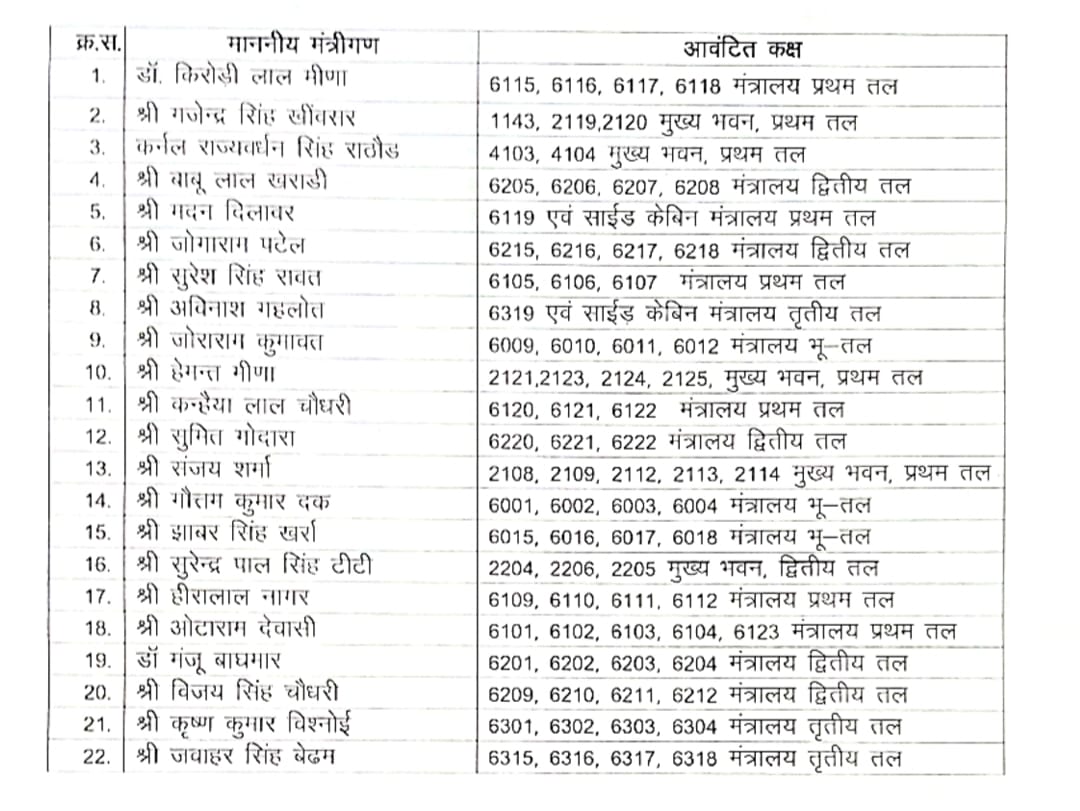 क्र.स. माननीय मंत्रीगण आवंटित कक्ष
1. डॉ. किरोड़ी लाल मीणा 6115, 6116, 6117, 6118 मंत्रालय प्रथम तल
2. श्री गजेन्द्र सिंह खींवसर 1143, 2119,2120 मुख्य भवन, प्रथम तल
3. कर्नल राज्यवर्धन सिंह राठौड 4103, 4104 मुख्य भवन, प्रथम तल
4. श्री बाबू लाल खराडी 6205, 6206, 6207, 6208 मंत्रालय द्वितीय तल
5. श्री मदन दिलावर 6119 एवं साईड केबिन मंत्रालय प्रथम तल
6. श्री जोगाराम पटेल 6215, 6216, 6217, 6218 मंत्रालय द्वितीय तल
7. श्री सुरेश सिंह रावत 6105, 6106, 6107 मंत्रालय प्रथम तल
8. श्री अविनाश गहलोत 6319 एवं साईड़ केबिन मंत्रालय तृतीय तल
9. श्री जोराराम कुमावत 6009, 6010, 6011, 6012 मंत्रालय भू–तल
10. श्री हेमन्त मीणा 2121,2123, 2124, 2125, मुख्य भवन, प्रथम तल
11. श्री कन्हैया लाल चौधरी 6120, 6121, 6122 मंत्रालय प्रथम तल
12. श्री सुमित गोदारा 6220, 6221, 6222 मंत्रालय द्वितीय तल
13. श्री संजय शर्मा 2108, 2109, 2112, 2113, 2114 मुख्य भवन, प्रथम तल
14. श्री गौतम कुमार दक 6001, 6002, 6003, 6004 मंत्रालय भू–तल
15. श्री झाबर सिंह खर्रा 6015, 6016, 6017, 6018 मंत्रालय भू–तल
16. श्री सुरेन्द्र पाल सिंह टीटी 2204, 2206, 2205 मुख्य भवन, द्वितीय तल
17. श्री हीरालाल नागर 6109, 6110, 6111, 6112 मंत्रालय प्रथम तल
18. श्री ओटाराम देवासी 6101, 6102, 6103, 6104, 6123 मंत्रालय प्रथम तल
19. डॉ मंजू बाघमार 6201, 6202, 6203, 6204 मंत्रालय द्वितीय तल
20. श्री विजय सिंह चौधरी 6209, 6210, 6211, 6212 मंत्रालय द्वितीय तल
21. श्री कृष्ण कुमार विश्नोई 6301, 6302, 6303, 6304 मंत्रालय तृतीय तल
22. श्री जवाहर सिंह बेढम 6315, 6316, 6317, 6318 मंत्रालय तृतीय तल